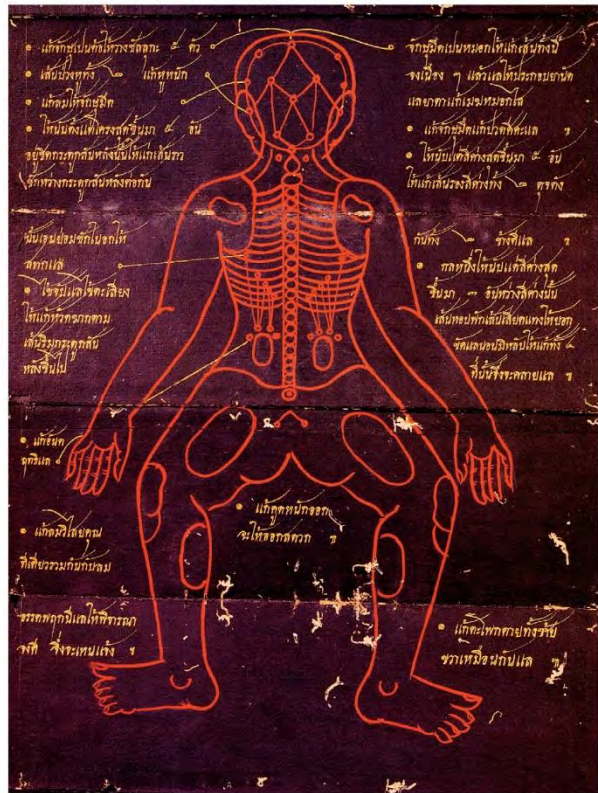 แก้จักษุเป็นต้อให้วางชัลลุกะ ๕ ตัว
เส้นบ่วงหูทั้ง ๒ แก้หูหนัก
แก้ลมให้จักษุมืด
ให้นับตั้งแต่โครงสุดขึ้นมา ๕ อัน
อยู่ชิดกระดูกสันหลังนั้นให้แก่เส้นราว
ชักหว่างกระดูกสันหลังต่อกัน
นั้นเอนย่อมชักไปอกให้
สทกแล
ไข้จับแลไข้ตะเสียง
ให้แก้หัวตมากตาม
เส้นริมกระดูกสัน
หลังขึ้นไป
แก้อันต
ฤทธิแล
แก้ลมวิไสยคุณ
ที่เดียวรวมกันกับลม
อรรตพฤกนี้แลให้พิจารณา
จงดี จึ่งจะเหนแจ้ง ฯ
จักษุมืดเป็นหมอกให้แก้เส้นทั้งนี้
จงเนือง ๆ แล้วแลให้ประกอบยานัด
แลยาตาแก้เมฆหมอกไถ
แก้จักษุมืดแก้ปวดสีศะแล ฯ
ให้นับแต่สีค่างสุดขึ้นมา ๕ อัน
ให้แก้เส้นรองสีค่างทั้ง ๒ ดุจดัง
กันทั้ง ๒ ข้างดีแล ฯ
กลหนึ่งให้นับแต่สีค่างสุด
ขึ้นมา ๓ อันหว่างสีค่างนั้น
เส้นหอบพักเส้นเสียดแทงให้ยอก
ขัดแลนอนมิหลับให้แก้ทั้ง ๔
ที่นั้นจึ่งจะคลายแล ฯ
แก้คูดหนักออก
จะให้ออกสดวก ฯ
แก้ตะโพกตายทั้งซ้าย
ขวาเหมือนกันแล ฯ